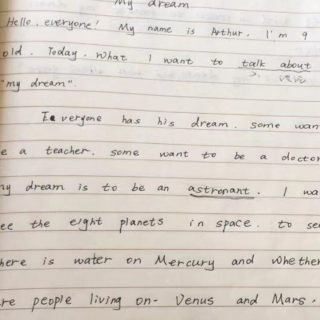 My dream
Hello. everyone! My name is Arthur. I'm 9
old. Today. What I want to talk about
"my dream".
Everyone has his dream. some wan
e a teacher. some want to be a doctor
my dream is to be an astronant. I wa
ee the eight planets in space. to se
here is water on Mercury and whether
re people living on- Venus and Mars.